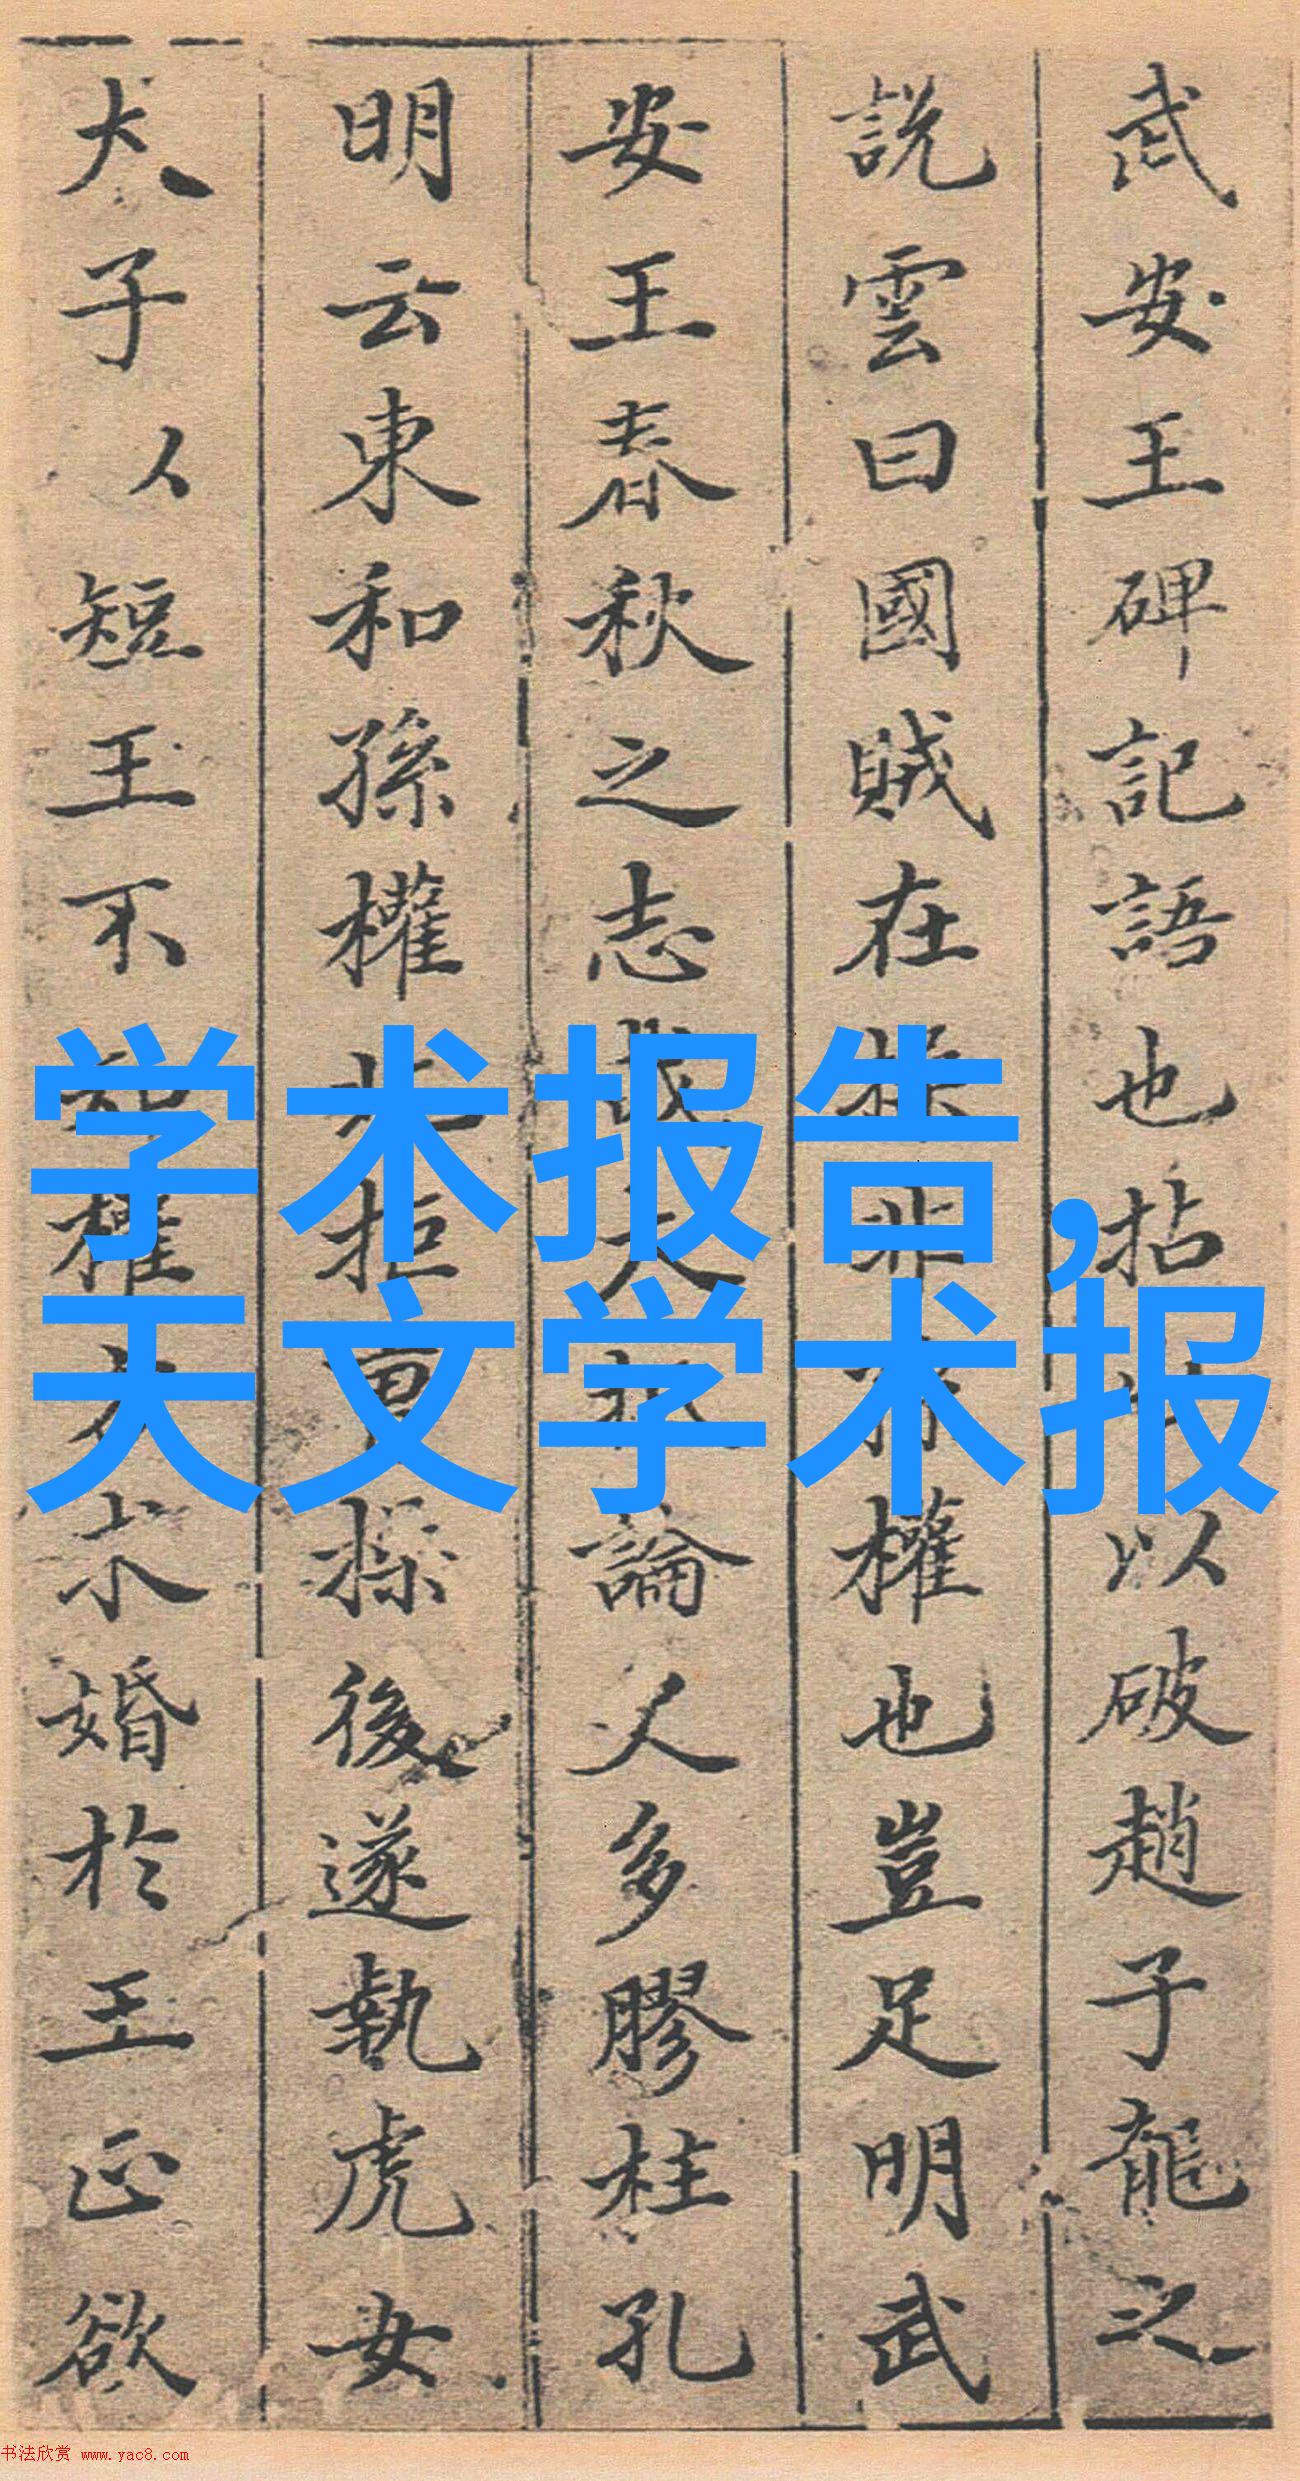 武安王碑記語也拈 以破趙子龍之
說雲曰國賊在 權也豈足明武
安王春秋之志 論人多膠柱孔
明云東和孫權北拒曹操後遂執虎女
犬子以短王不知權 求婚於王正欲
学术报告,
天文学术报
书法欣赏 www.yac8.com